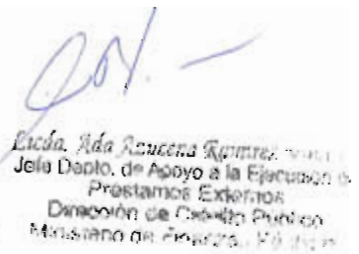 Licda. Ada Azucena Ramírez
Jefe Depto. de Apoyo a la Ejecución
Préstamos Externos
Dirección de Crédito Público
Ministerio de Finanzas